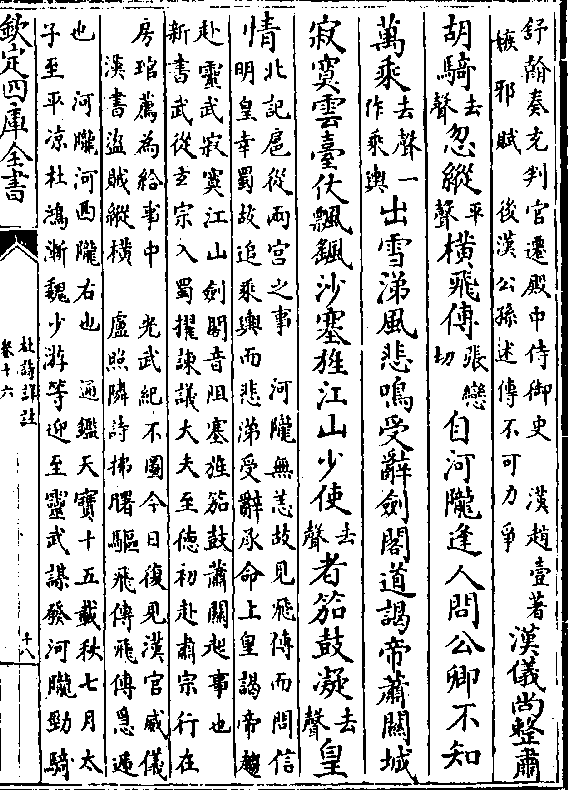 舒翰奏充判官遷殿中侍御史　漢趙壹著
嫉邪賦　後漢公孫述傳不可力爭
漢儀尚整肅
胡騎去聲忽縱平聲橫飛傳張戀切自河隴逢人問公卿不知
萬乘去聲一作乘輿出雪涕風悲鳴受辭劍閣道謁帝蕭關城
寂寞雲臺仗飄颻沙塞旌江山少使去聲者笳鼓凝去聲皇
情
北記扈從兩宮之事　河隴無恙故見飛傳而問信
明皇幸蜀故追乘輿而悲涕受辭承命上皇謁帝趨
赴靈武寂寞江山劍閣音阻塞旌笳鼓蕭關起事也
新書武從玄宗入蜀擢諫議大夫至德初赴肅宗行在
房琯薦為給事中　光武紀不圖今日復見漢官威儀
漢書盜賊縱橫　盧照隣詩拂曙驅飛傳飛傳急遞
也　河隴河西隴右也　通鑑天寶十五載秋七月太
子至平凉杜鴻漸魏少游等迎至靈武謀發河隴勁騎
欽定四庫全書
杜詩詳註
卷十六
十八